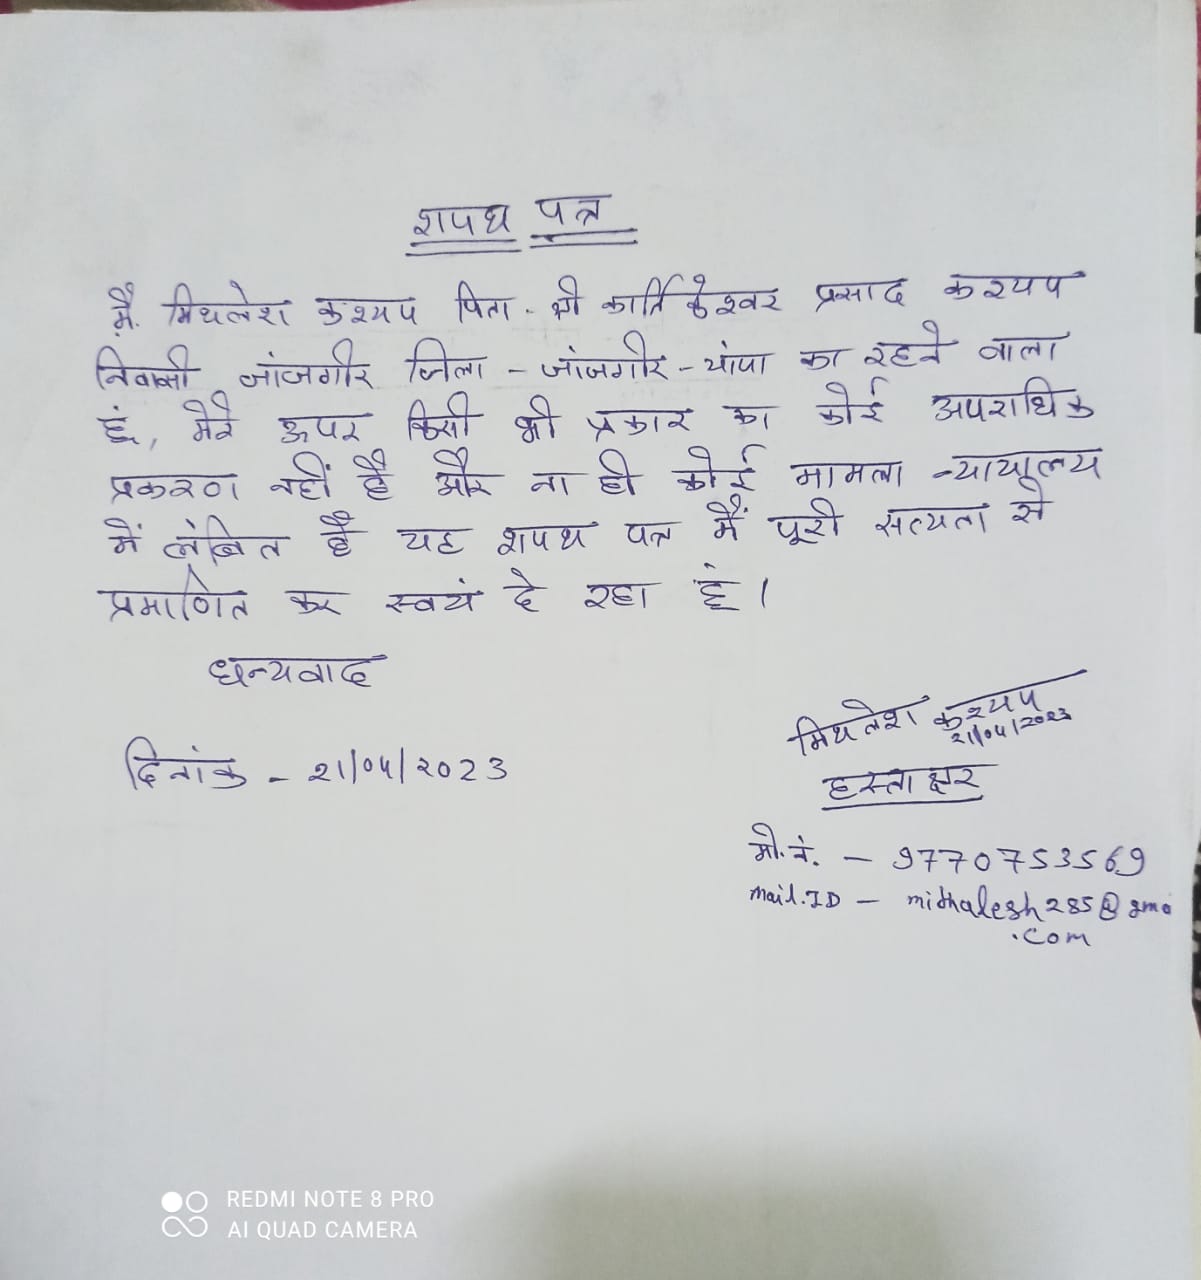 शपथ पत्र
मैं. मिथलेश कश्यप पिता - श्री कार्तिकेश्वर प्रसाद कश्यप
निवासी जांजगीर जिला - जांजगीर - चांपा का रहने वाला
हूं, मेरे ऊपर किसी भी प्रकार का कोई अपराधिक
प्रकरण नहीं है और ना ही कोई मामला न्यायालय
में लंबित है यह शपथ पत्र मैं पूरी सत्यता से
प्रमाणित कर स्वयं दे रहा हूं ।
धन्यवाद
मिथलेश कश्यप
21/04/2023
दिनांक - 21/04/2023
हस्ताक्षर
मो. नं. - 9770753569
mail.ID - mithalesh285@gma
.com
REDMI NOTE 8 PRO
AI QUAD CAMERA